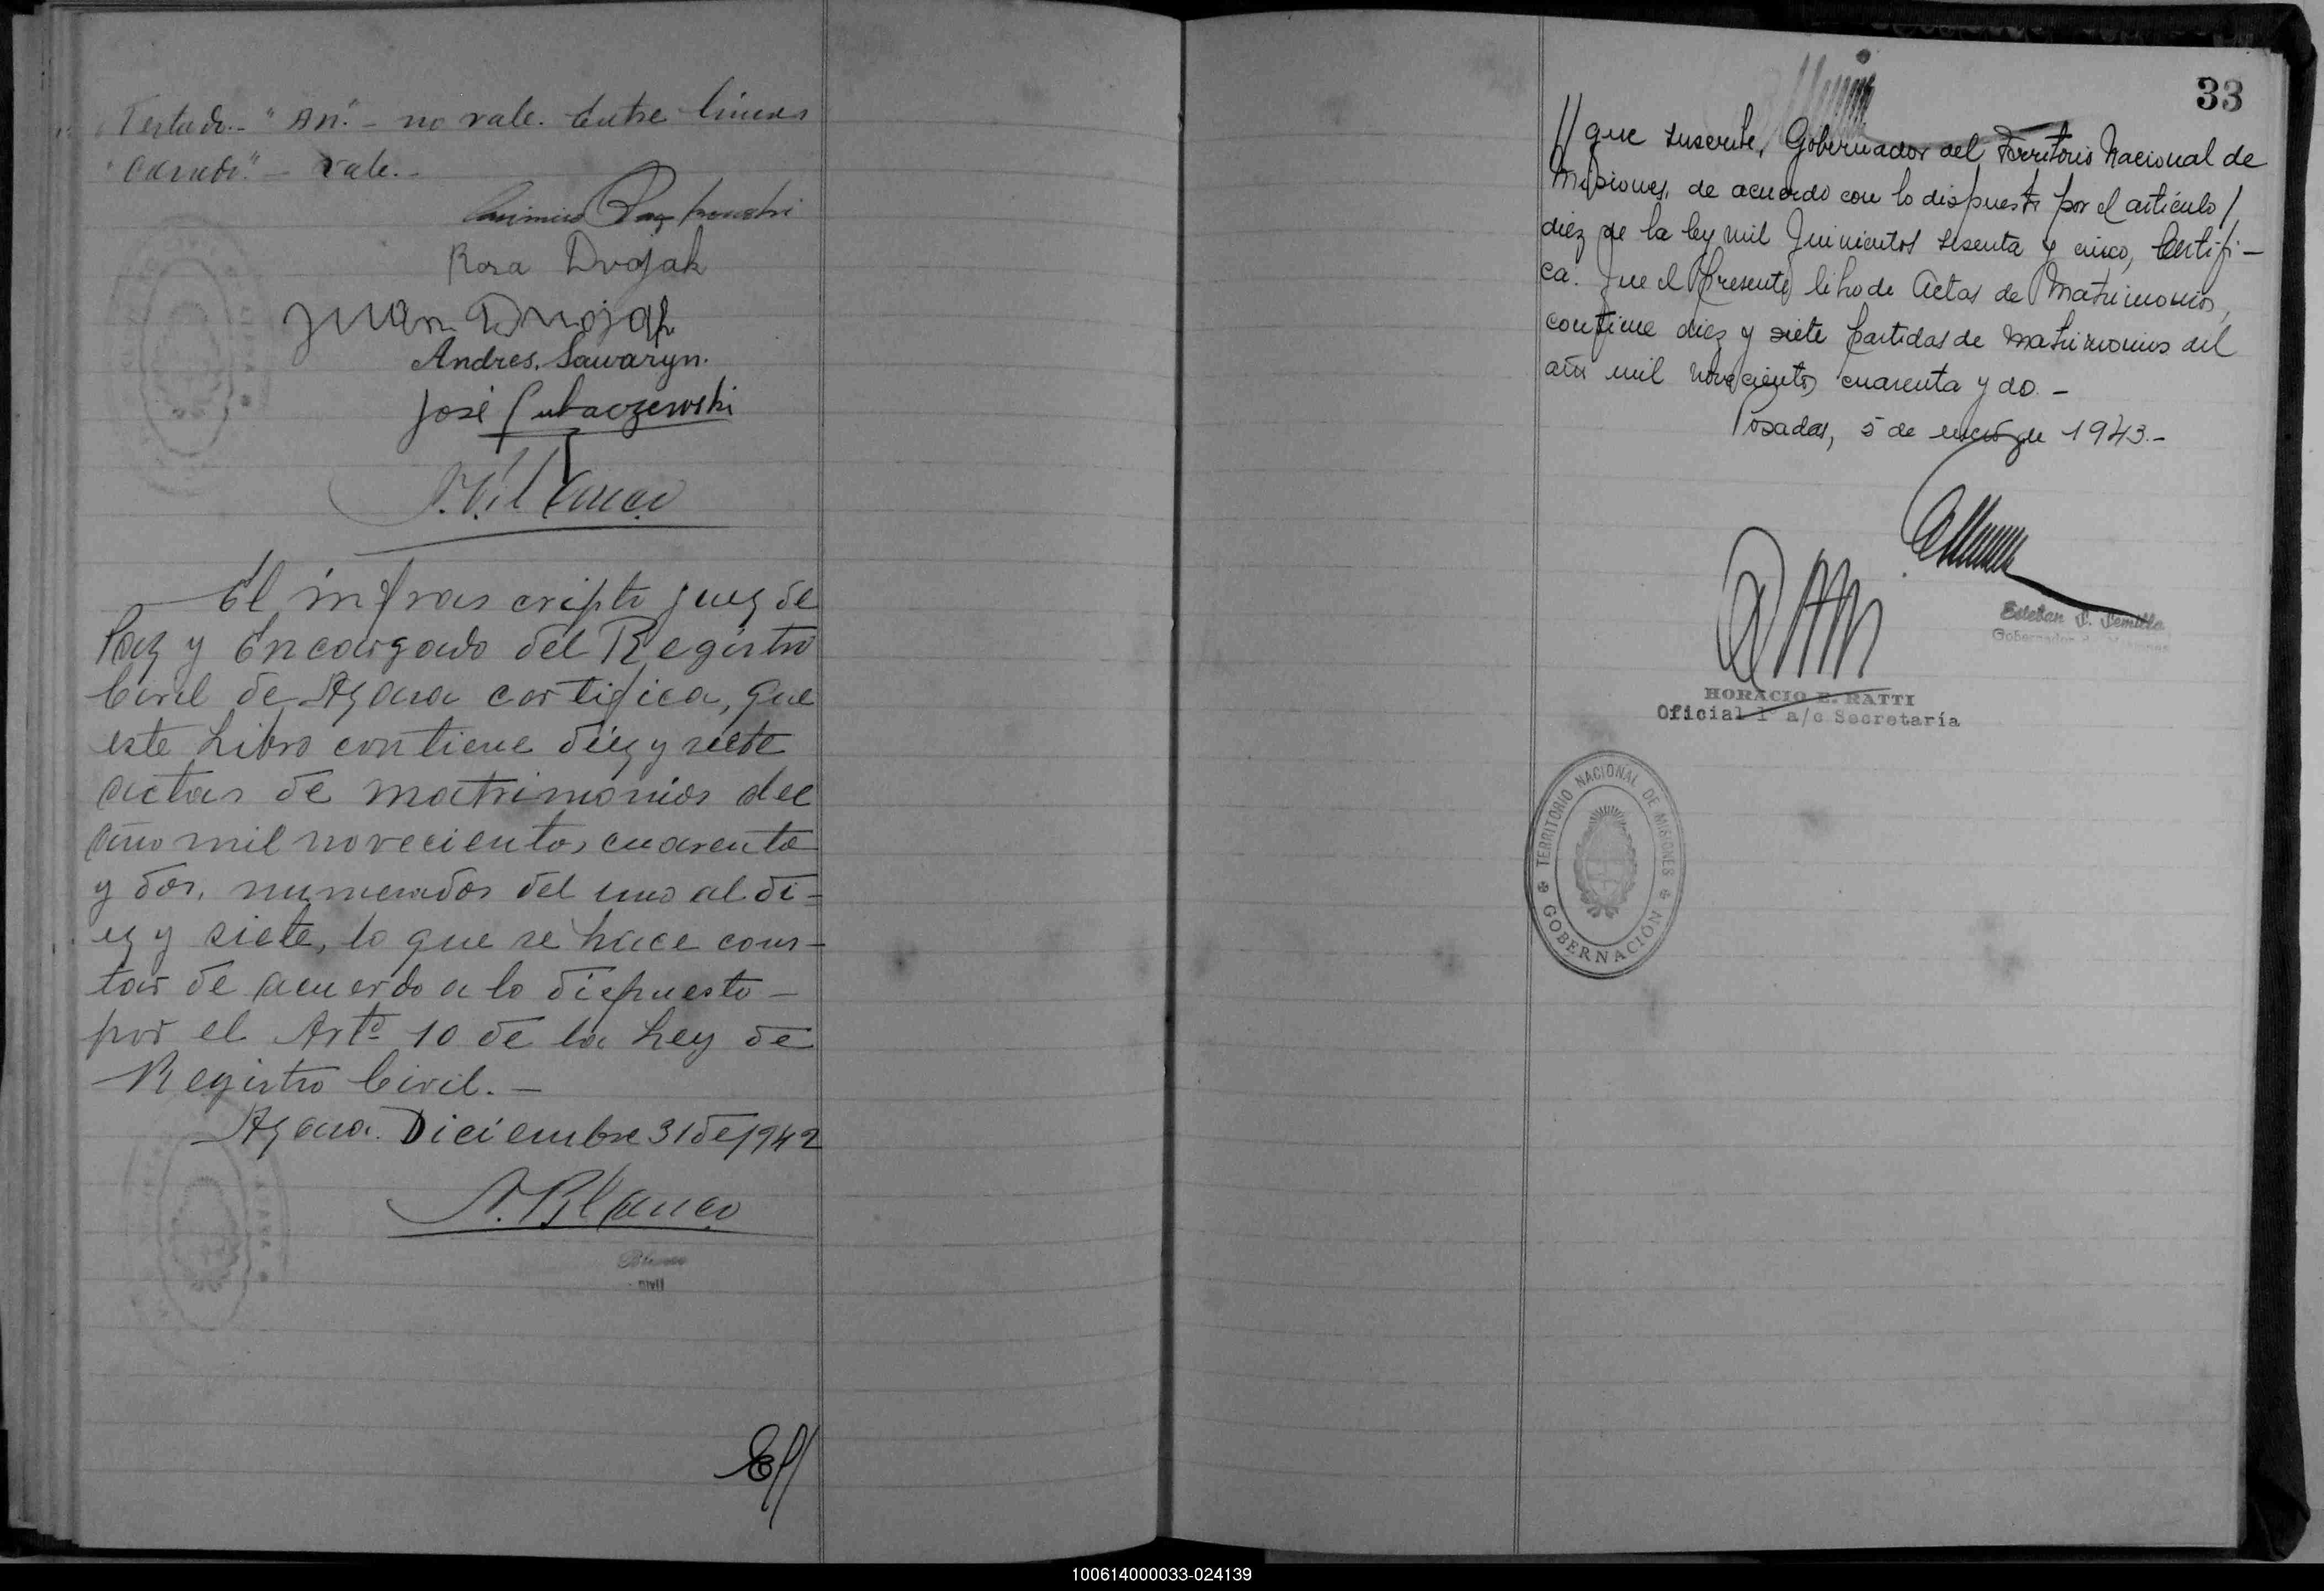 Testado.- "An".- no vale. Entre lineas
"Casado".- vale.-
Casimiro
Rosa Dvojak
Juan Dwojak
Andres. Sawaryn.
José Lubaczewski
A. Blanco
El infrascripto Juez de
Paz y Encargado del Registro
Civil de Azara certifica, que
este Libro contiene diez y siete
actas de matrimonios del
año mil novecientos cuarenta
y dos, numerados del uno al di=
ez y siete, lo que se hace cons-
tar de acuerdo a lo dispuesto-
por el Artº 10 de la Ley de
Registro Civil.-
Azara. Diciembre 31 de 1942
A. Blanco
Blanco
El//
33
// que suscribe, Gobernador del Territorio Nacional de
Misiones, de acuerdo con lo dispuesto por el artículo /
diez de la ley mil quinientos sesenta y cinco, Certifi-
ca. Que el presente libro de Actas de Matrimonios,
contiene diez y siete partidas de matrimonios del
año mil novecientos cuarenta y dos.-
Posadas, 5 de enero de 1943.-
Esteban
Gobernador de Misiones
HORACIO E. RATTI
Oficial 1º a/c Secretaría
TERRITORIO NACIONAL DE MISIONES
GOBERNACIÓN
100614000033-024139